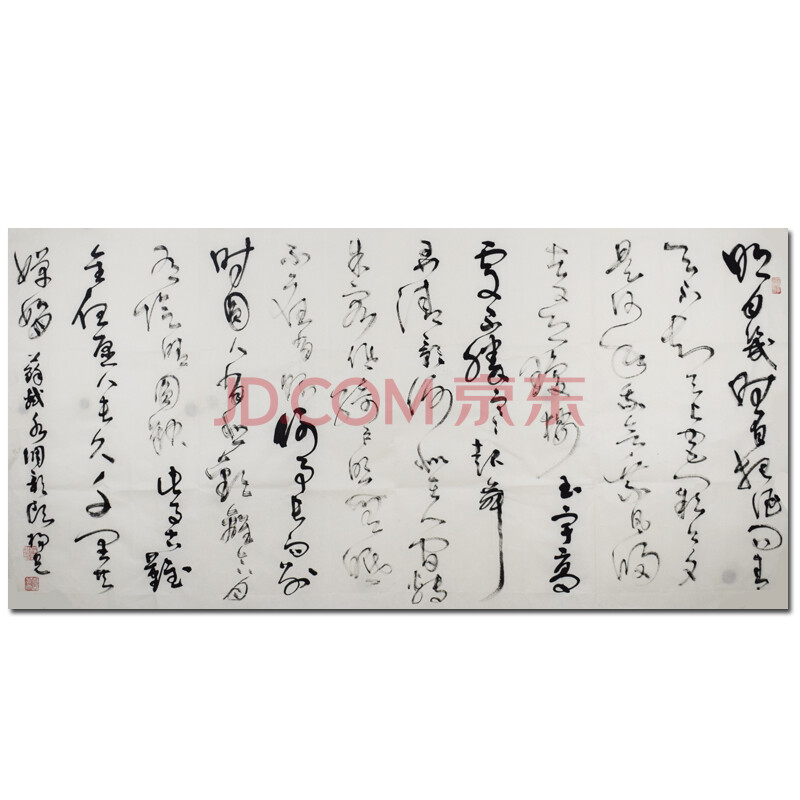 明月幾时有把酒问青
天不知天上宫阙今夕
是何年我欲乘风归
去又恐瓊樓玉宇高
處不勝寒起舞
弄清影何似在人间轉
朱阁低绮户照無眠
不应有恨何事长向别
时圆人有悲歡離合月
有陰晴圆缺此事古難
全但愿人长久千里共
嬋娟 蘇軾水调歌头
JD.COM 京东